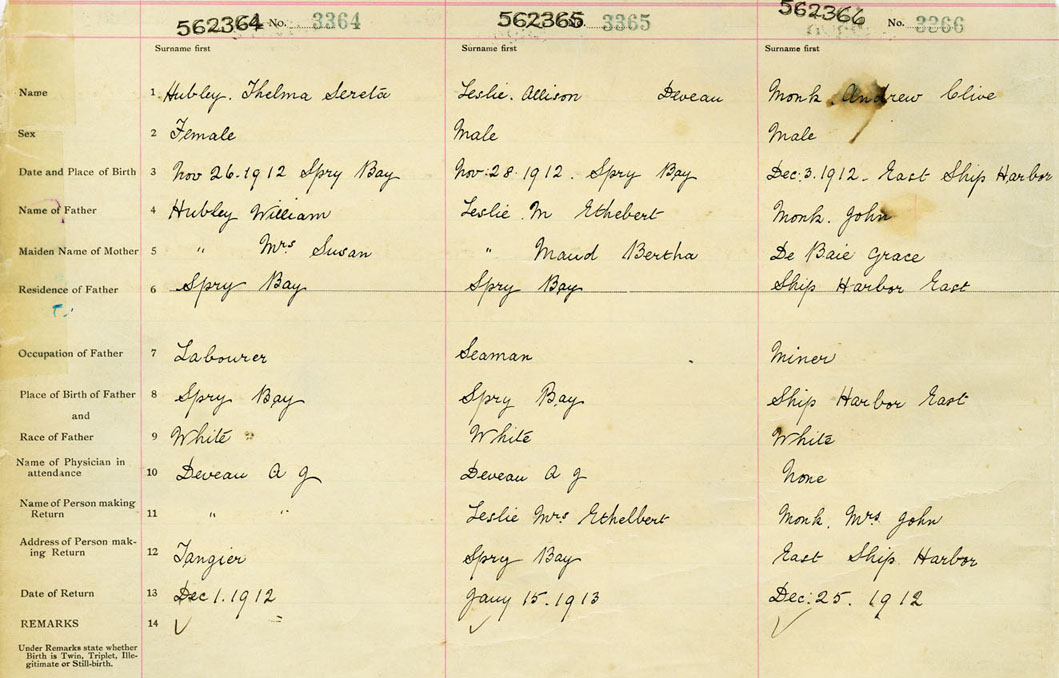 562364 No. 3364 562365 3365 562366 No. 3366
Surname first Surname first Surname first
Name 1 Hubley. Thelma Sereta Leslie. Allison Deveau Monk Andrew Clive
Sex 2 Female Male Male
Date and Place of Birth 3 Nov 26.1912 Spry Bay Nov:28.1912. Spry Bay Dec:3.1912- East Ship Harbor
Name of Father 4 Hubley William Leslie. M Ethebert Monk. John
Maiden Name of Mother 5 " Mrs Susan " Maud Bertha De Baie Grace
Residence of Father 6 Spry Bay Spry Bay Ship Harbor East
Occupation of Father 7 Labourer Seaman Miner
Place of Birth of Father 8 Spry Bay Spry Bay Ship Harbor East
and
Race of Father 9 White White White
Name of Physician in
attendance 10 Deveau A J Deveau A J None
Name of Person making
Return 11 " " Leslie Mrs Ethelbert Monk. Mrs John
Address of Person mak-
ing Return 12 Tangier Spry Bay East Ship Harbor
Date of Return 13 Dec 1.1912 Jany 15.1913 Dec:25. 1912
REMARKS 14
Under Remarks state whether
Birth is Twin, Triplet, Ille-
gitimate or Still-birth.